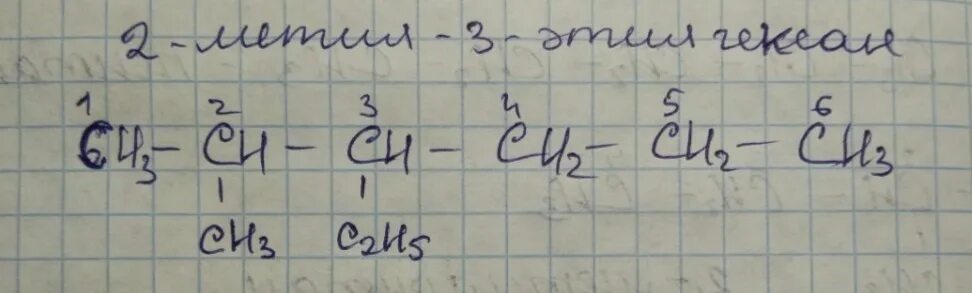 2-метил-3-этилгексан
1 2 3 4 5 6
CH3 – CH – CH – CH2 – CH2 – CH3
| |
CH3 C2H5